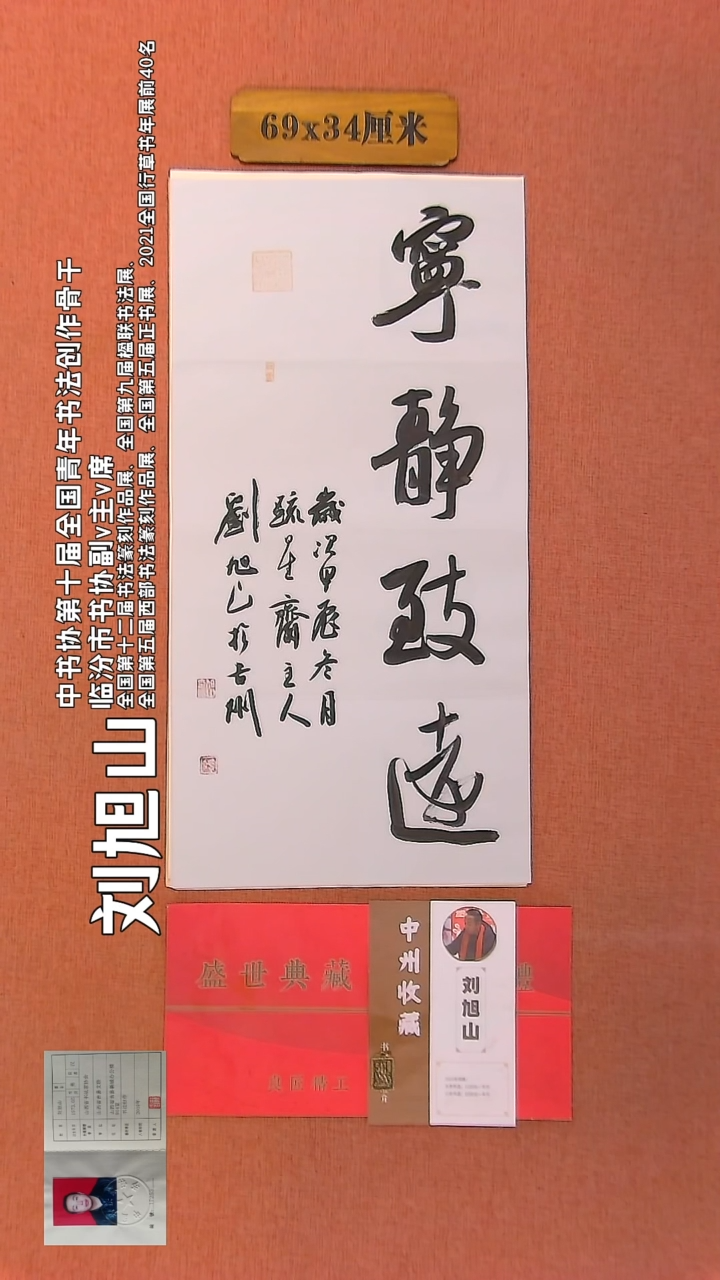 69x34厘米
寧靜致遠
歲次甲辰冬月
疏星齋主人
劉旭山於古州
刘旭山
中书协第十届全国青年书法创作骨干
临汾市书协副v主v席
全国第十二届书法篆刻作品展、全国第九届楹联书法展、
全国第五届西部书法篆刻作品展、全国第五届正书展、2021全国行草书年展前40名
盛世典藏
良匠精工
中州收藏
刘旭山